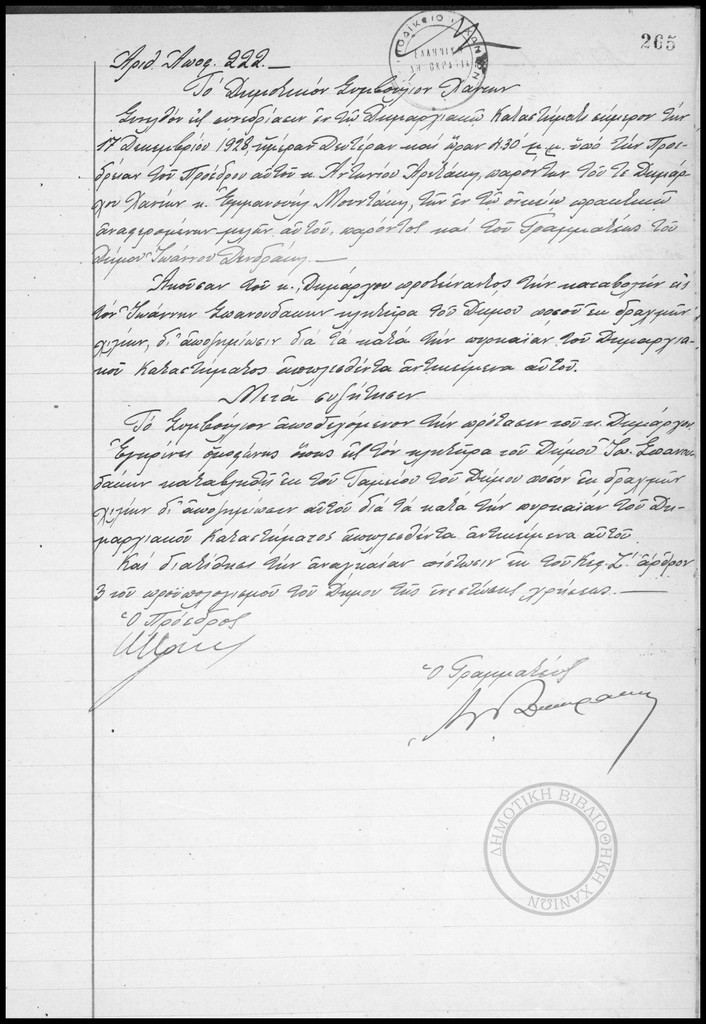 265
ΠΡΩΤΟΔΙΚΕΙΟ ΧΑΝΙΩΝ
ΕΛΛΗΝΙΚΗ
ΔΗΜΟΚΡΑΤΙΑ
Ἀριθ. Ἀποφ. 222.—
Τὸ Δημοτικὸν Συμβούλιον Χανίων
Συνελθὸν εἰς συνεδρίασιν ἐν τῷ Δημαρχιακῷ Καταστήματι σήμερον τὴν
17 Δεκεμβρίου 1928, ἡμέραν Δευτέραν καὶ ὥραν 4.30 μ.μ. ὑπὸ τὴν Προε-
δρείαν τοῦ Προέδρου αὐτοῦ κ. Ἀντωνίου παρόντων τοῦ τε Δημάρ-
χου Χανίων κ. Ἐμμανουὴλ Μουντάκη, τῶν ἐν τῷ οἰκείῳ πρακτικῷ
ἀναφερομένων μελῶν αὐτοῦ, παρόντος καὶ τοῦ Γραμματέως τοῦ
Δήμου Ἰωάννου
Ἀκοῦσαν τοῦ κ. Δημάρχου προτείναντος τὴν καταβολὴν εἰς
τὸν Ἰωάννην Σπανουδάκην κλητῆρα τοῦ Δήμου ποσοῦ ἐκ δραχμῶν
χιλίων, δι' ἀποζημίωσιν διὰ τὰ κατὰ τὴν πυρκαϊὰν τοῦ Δημαρχια-
κοῦ Καταστήματος ἀπωλεσθέντα ἀντικείμενα αὐτοῦ.
Μετὰ συζήτησιν
Τὸ Συμβούλιον ἀποδεχόμενον τὴν πρότασιν τοῦ κ. Δημάρχου
Ἐγκρίνει ὁμοφώνως ὅπως εἰς τὸν κλητῆρα τοῦ Δήμου Ἰω. Σπανου-
δάκην καταβληθῇ ἐκ τοῦ Ταμείου τοῦ Δήμου ποσὸν ἐκ δραχμῶν
χιλίων δι' ἀποζημίωσιν αὐτοῦ διὰ τὰ κατὰ τὴν πυρκαϊὰν τοῦ Δη-
μαρχιακοῦ Καταστήματος ἀπωλεσθέντα ἀντικείμενα αὐτοῦ.
Καὶ διατίθησι τὴν ἀναγκαίαν πίστωσιν ἐκ τοῦ Κεφ. Ζ' ἄρθρον
3 τοῦ προϋπολογισμοῦ τοῦ Δήμου τῆς ἐνεστώσης χρήσεως.—
Ὁ Πρόεδρος
Ὁ Γραμματεὺς
ΔΗΜΟΤΙΚΗ ΒΙΒΛΙΟΘΗΚΗ ΧΑΝΙΩΝ